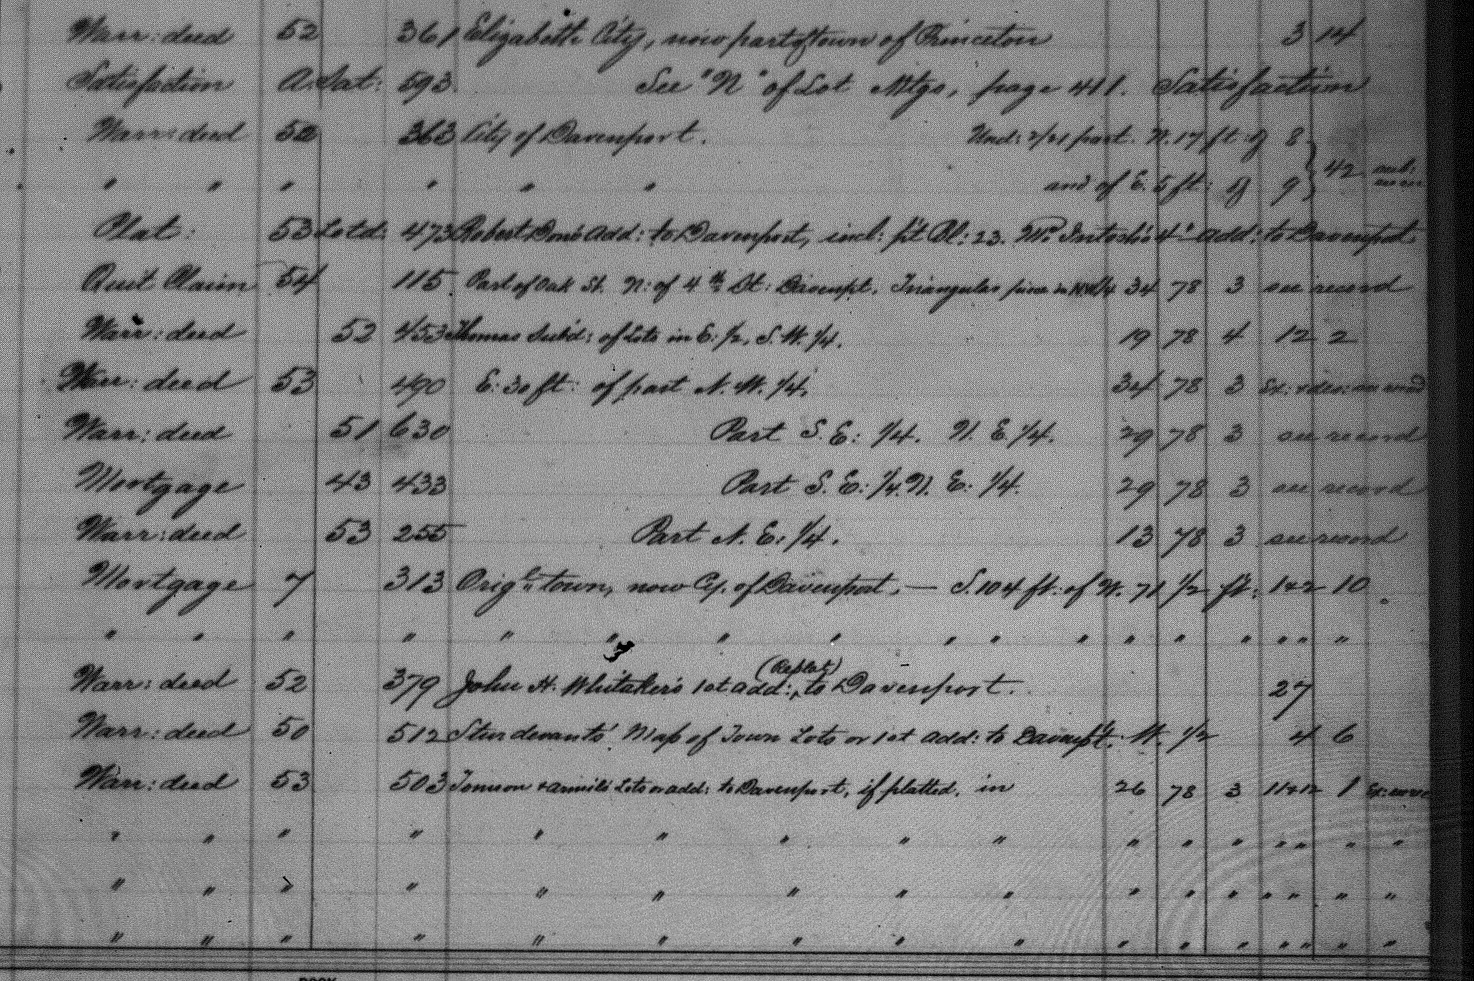 Warr: deed 52 361 Elizabeth City, now part of town of Princeton 3 14
Satisfaction A. Sat: 593 See "N" of Lot Mtgs, page 411. Satisfaction
Warr: deed 52 363 City of Davenport. Und: 2/21 part. N. 17 ft: of 8
" " " " " " and of E. 5 ft: of 9 } 42
Plat: 53 Lotd: 473 Robert add: to Davenport, incl: p't Bl: 23. Mc Intosh's 4" add: to Davenport
Quit Claim 54 115 Part of Oak St. N: of 4th St: Davenpt. Triangular piece in 34 78 3 see record
Warr: deed 52 453 Thomas Subd: of Lots in E: 1/2, S. W. 1/4. 19 78 4 12 2
Warr: deed 53 490 E: 30 ft: of part N. W. 1/4. 34 78 3
Warr: deed 51 630 Part S. E: 1/4. N. E. 1/4. 29 78 3 see record
Mortgage 43 433 Part S. E: 1/4. N. E: 1/4. 29 78 3 see record
Warr: deed 53 255 Part N. E. 1/4. 13 78 3 see record
Mortgage 7 313 Orig'l town, now Cy. of Davenport. — S. 104 ft: of W. 71 1/2 ft: 1+2 10
" " " " " " " " " " " " " " " " "
(Replat)
Warr: deed 52 379 John H. Whitaker's 1st add:, to Davenport. 27
Warr: deed 50 512 Sturdevants' Map of Town Lots or 1st add: to Davenp't. W. 1/2 4 6
Warr: deed 53 503 Lots or add: to Davenport, if platted, in 26 78 3 11+12 1
" " " " " " " " " " " " " " " "
" " " " " " " " " " " " " " " "
" " " " " " " " " " " " " " " "